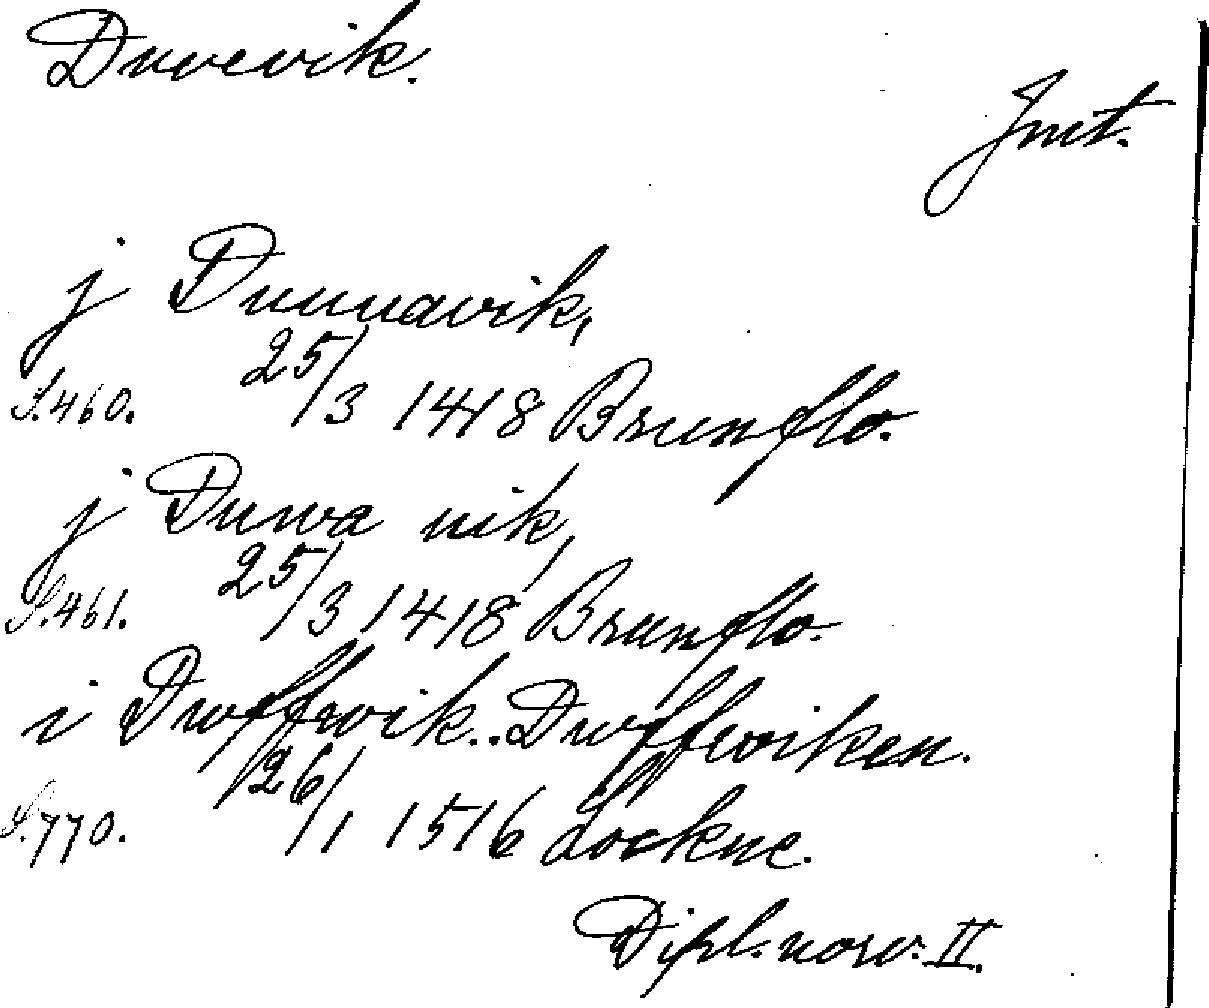 Duvevik.
Jmt.
j Duuuavik,
S. 460. 25/3 1418 Brunflo.
j Duwa uik,
S. 461. 25/3 1418 Brunflo.
i Dwffwik.. Dwffwiken.
S. 770. 26/1 1516 Lockne.
Dipl. norv. II.